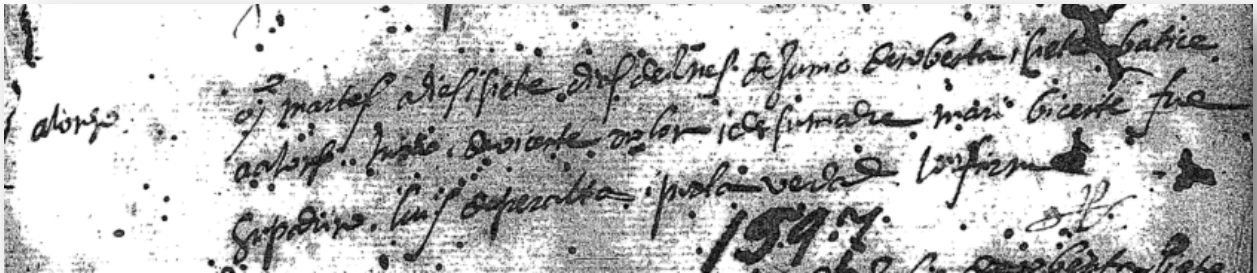 alonso
oj martes a diesisiete dias del mes de Junio de nobenta i siete batice
a alonso hijo de vicente i de su madre mari bicente fue
su padrino luis de peralta i por la verdad lo firme
1597
de nobenta i siete